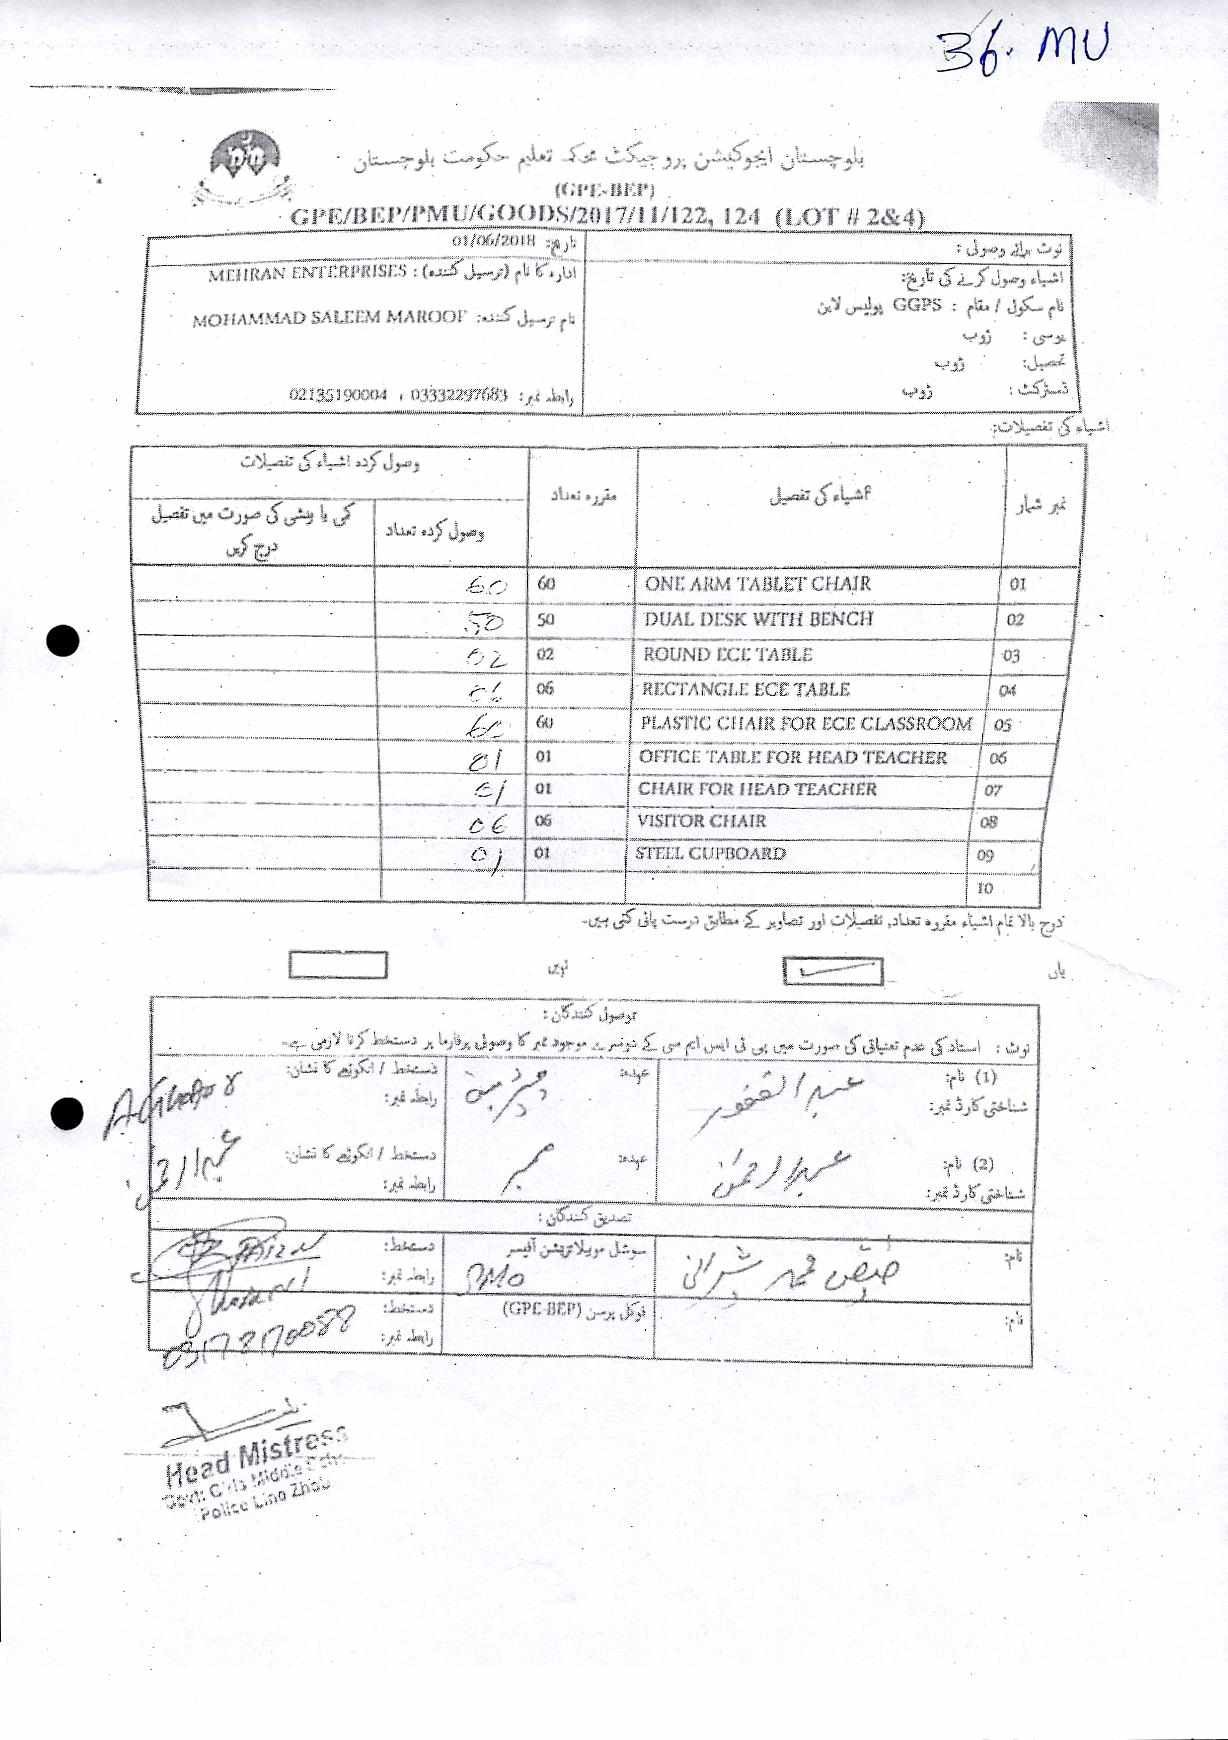 36. MU
بلوچستان ایجوکیشن پروجیکٹ محکمہ تعلیم حکومت بلوچستان
(GPE-BEP)
GPE/BEP/PMU/GOODS/2017/11/122, 124 (LOT # 2&4)
نوٹ برائے وصولی :
تاریخ: 01/06/2018
اشیاء وصول کرنے کی تاریخ:
ادارہ کا نام (ترسیل کنندہ) : MEHRAN ENTERPRISES
نام سکول / مقام : GGPS پولیس لاین
نام ترسیل کنندہ: MOHAMMAD SALEEM MAROOF
یوسی : ژوب
تحصیل: ژوب
ڈسٹرکٹ : ژوب
رابطہ نمبر: 03332297683 ، 02135190004
اشیاء کی تفصیلات:
نمبر شمار اشیاء کی تفصیل مقررہ تعداد وصول کردہ اشیاء کی تفصیلات
وصول کردہ تعداد کمی یا بیشی کی صورت میں تفصیل درج کریں
01 ONE ARM TABLET CHAIR 60 60
02 DUAL DESK WITH BENCH 50 50
03 ROUND ECE TABLE 02 02
04 RECTANGLE ECE TABLE 06 06
05 PLASTIC CHAIR FOR ECE CLASSROOM 60 60
06 OFFICE TABLE FOR HEAD TEACHER 01 01
07 CHAIR FOR HEAD TEACHER 01 01
08 VISITOR CHAIR 06 06
09 STEEL CUPBOARD 01 01
10
درج بالا تمام اشیاء مقررہ تعداد، تفصیلات اور تصاویر کے مطابق درست پائی گئی ہیں۔
ہاں نہیں
وصول کنندگان :
نوٹ : استاد کی عدم تعیناتی کی صورت میں پی ٹی ایس ایم سی کے دوسرے موجود ممبر کا وصولی پرفارما پر دستخط کرنا لازمی ہے۔
(1) نام: عبدالغفور عہدہ: چیئرمین دستخط / انگوٹھے کا نشان:
شناختی کارڈ نمبر: رابطہ نمبر:
(2) نام: عبدالرحمن عہدہ: ممبر دستخط / انگوٹھے کا نشان: عبدالرحمن
شناختی کارڈ نمبر: رابطہ نمبر:
تصدیق کنندگان :
نام: محمد شیرانی سوشل موبیلائزیشن آفیسر دستخط:
رابطہ نمبر:
نام: فوکل پرسن (GPE-BEP) دستخط:
رابطہ نمبر: 03178170088
Head Mistress
Govt: Girls Middle
Police Line Zhob